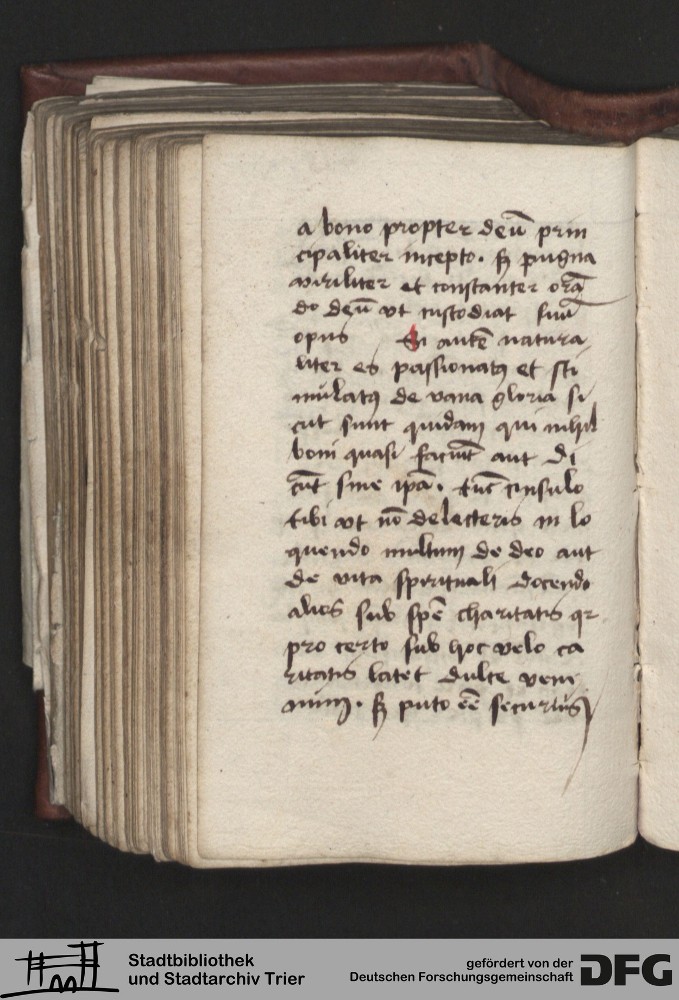 a bono propter deū prin
cipaliter incepto. sꝫ pugna
viriliter et constanter orā
do deū vt custodiat suū
opus Si autē natura
liter es passionatꝰ et sti
mulatꝰ de vana gloria si
cut sunt quidam qui nihil
boni quasi faciūt aut di
cūt sine ipā. tūc consulo
tibi vt nō delecteris in lo
quendo multum de deo aut
de vita spirituali docendo
alios sub spē charitatis qr
pro certo sub hoc velo ca
ritatis latet dulce vene
num. sꝫ puto eē securius
Stadtbibliothek
und Stadtarchiv Trier
gefördert von der
Deutschen Forschungsgemeinschaft
DFG